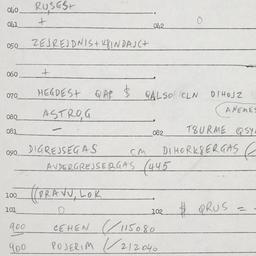 060 RUSGS+
061 + 062 0
050 ZEJREJDNIS+K8INDAJC+
060 +
070 HEGDES+ QAP $ QALSO CLN DIHOJZ
080 ASTRO,G (ANEMES
081 - 082 T8URME QSY
090 DIGREJSEGAS CM DIHORK8ERGAS (
AVDERGREJSERGAS (445
100 ((PRAVV, LOK
101 0 102 $ QRUS = -
900 CEHEN (/115080
900 POJERIM (/212040